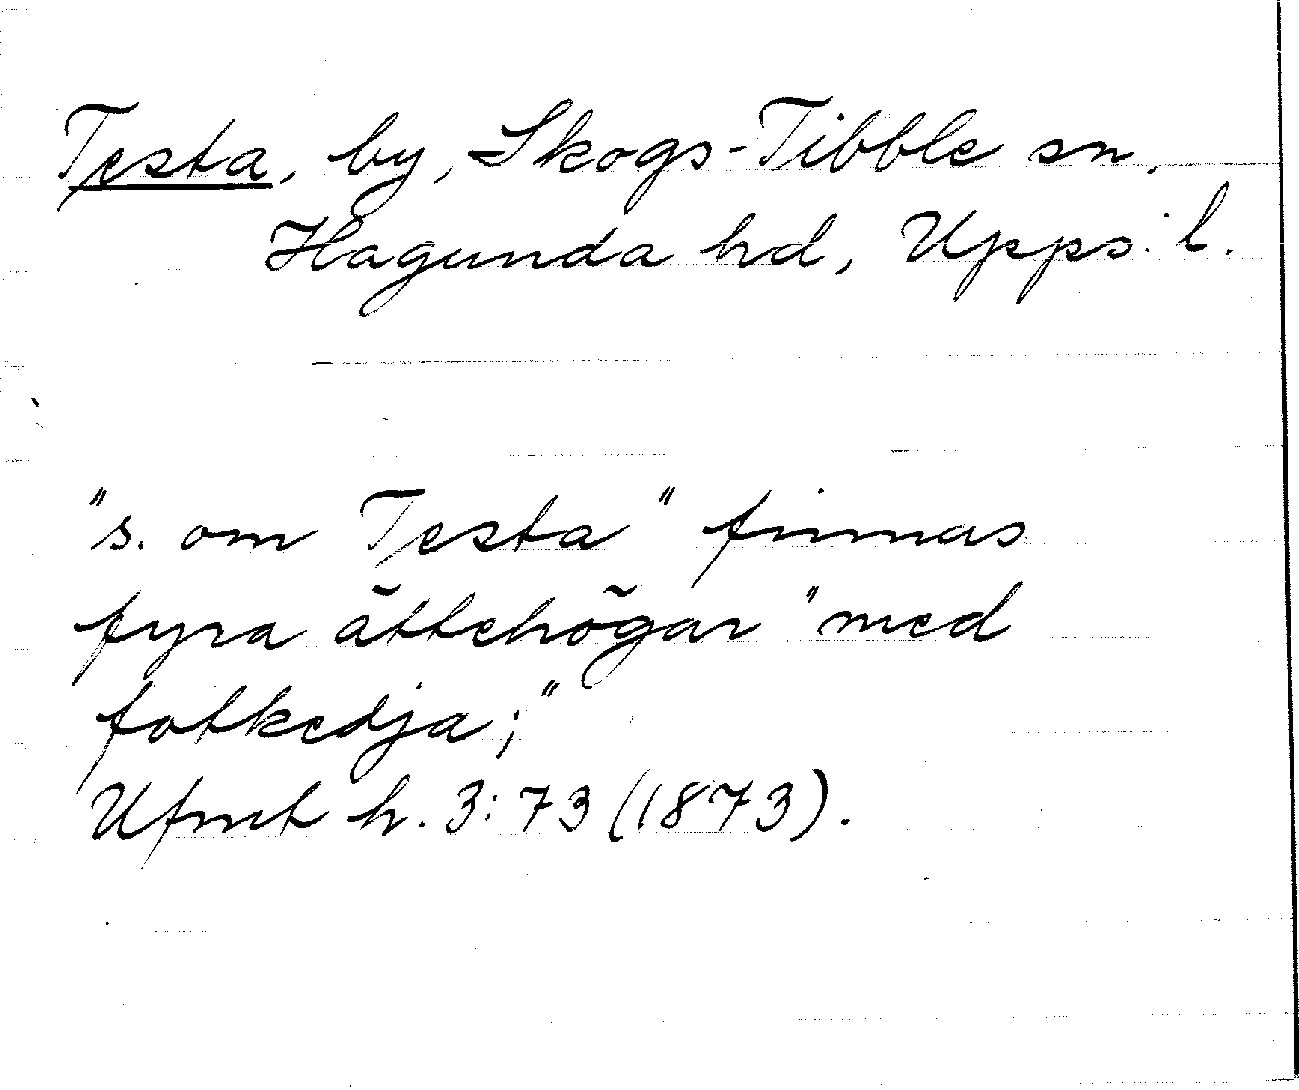 Testa, by, Skogs-Tibble sn,
Hagunda hd, Upps. l.
"s. om Testa" finnas
fyra ättehögar "med
fotkedja;"
Ufmt h. 3:73 (1873).